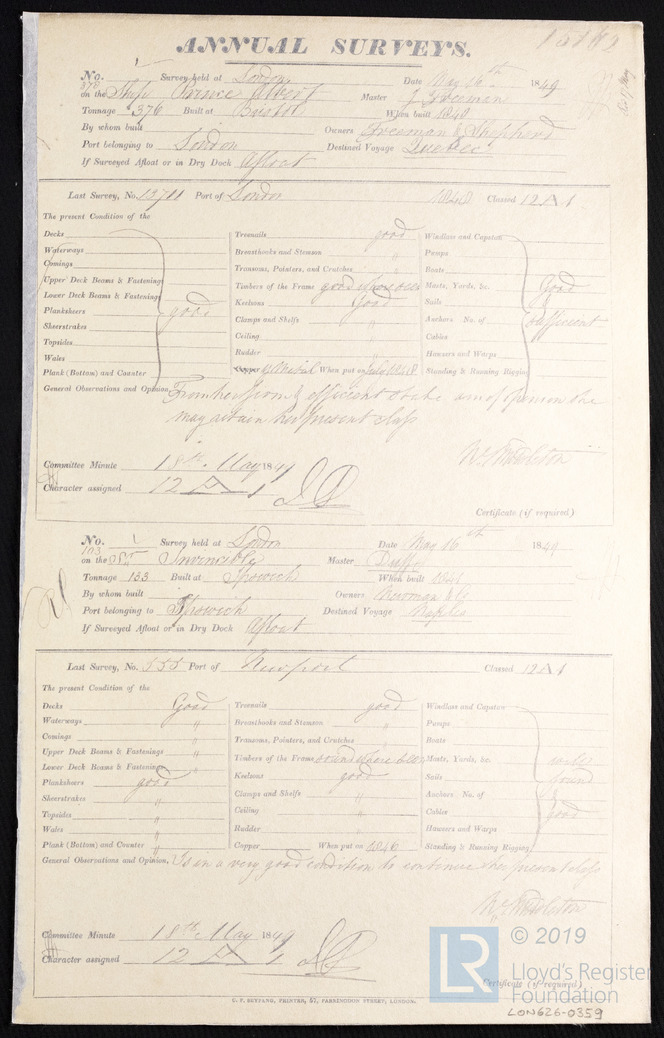 ANNUAL SURVEYS.
No. 376 Survey held at London Date May 16th 1849
on the Ship Prince Albert Master J Freeman
Tonnage 376 Built at Bristol When built 1840
By whom built Owners Freeman & Shepherd
Port belonging to London Destined Voyage Quebec
If Surveyed Afloat or in Dry Dock Afloat
Last Survey, No. 13711 Port of London 1848 Classed 12 A 1
The present Condition of the
Decks
Waterways
Comings
Upper Deck Beams & Fastenings
Lower Deck Beams & Fastenings
Planksheers good
Sheerstrakes
Topsides
Wales
Plank (Bottom) and Counter
Treenails good
Breasthooks and Stemson "
Transoms, Pointers, and Crutches "
Timbers of the Frame good where seen
Keelsons Good
Clamps and Shelfs "
Ceiling "
Rudder "
Copper When put on July 1848
Windlass and Capstan
Pumps
Boats
Masts, Yards, &c. Good
Sails &
Anchors No. of sufficient
Cables
Hawsers and Warps
Standing & Running Rigging
General Observations and Opinion, From her firm & efficient state am of opinion she
may retain her present class
Wm Middleton
Committee Minute 18th May 1849
Character assigned 12 A 1
Certificate (if required)
No. 103 Survey held at London Date May 16th 1849
on the Sr Invincible Master Duff
Tonnage 133 Built at Ipswich When built 1841
By whom built Owners Newman & Co
Port belonging to Ipswich Destined Voyage Naples
If Surveyed Afloat or in Dry Dock Afloat
Last Survey, No. 555 Port of Newport Classed 12 A 1
The present Condition of the
Decks Good
Waterways "
Comings "
Upper Deck Beams & Fastenings "
Lower Deck Beams & Fastenings "
Planksheers good
Sheerstrakes "
Topsides "
Wales "
Plank (Bottom) and Counter "
Treenails good
Breasthooks and Stemson "
Transoms, Pointers, and Crutches "
Timbers of the Frame sound where seen
Keelsons good
Clamps and Shelfs "
Ceiling "
Rudder "
Copper When put on 1846
Windlass and Capstan
Pumps
Boats
Masts, Yards, &c. well
Sails found
Anchors No. of &
Cables good
Hawsers and Warps
Standing & Running Rigging
General Observations and Opinion, Is in a very good condition to continue her present class
Wm Middleton
Committee Minute 18th May 1849
Character assigned 12 A 1
Certificate (if required)
LR © 2019
Lloyd's Register
Foundation
LON626-0359